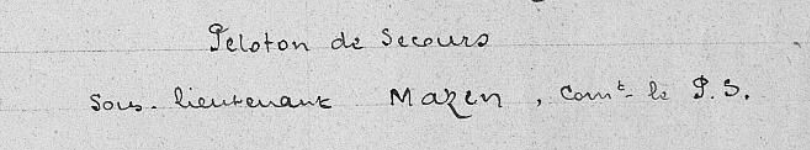 Peloton de Secours
Sous-lieutenant Mazen, Comt le P.S.